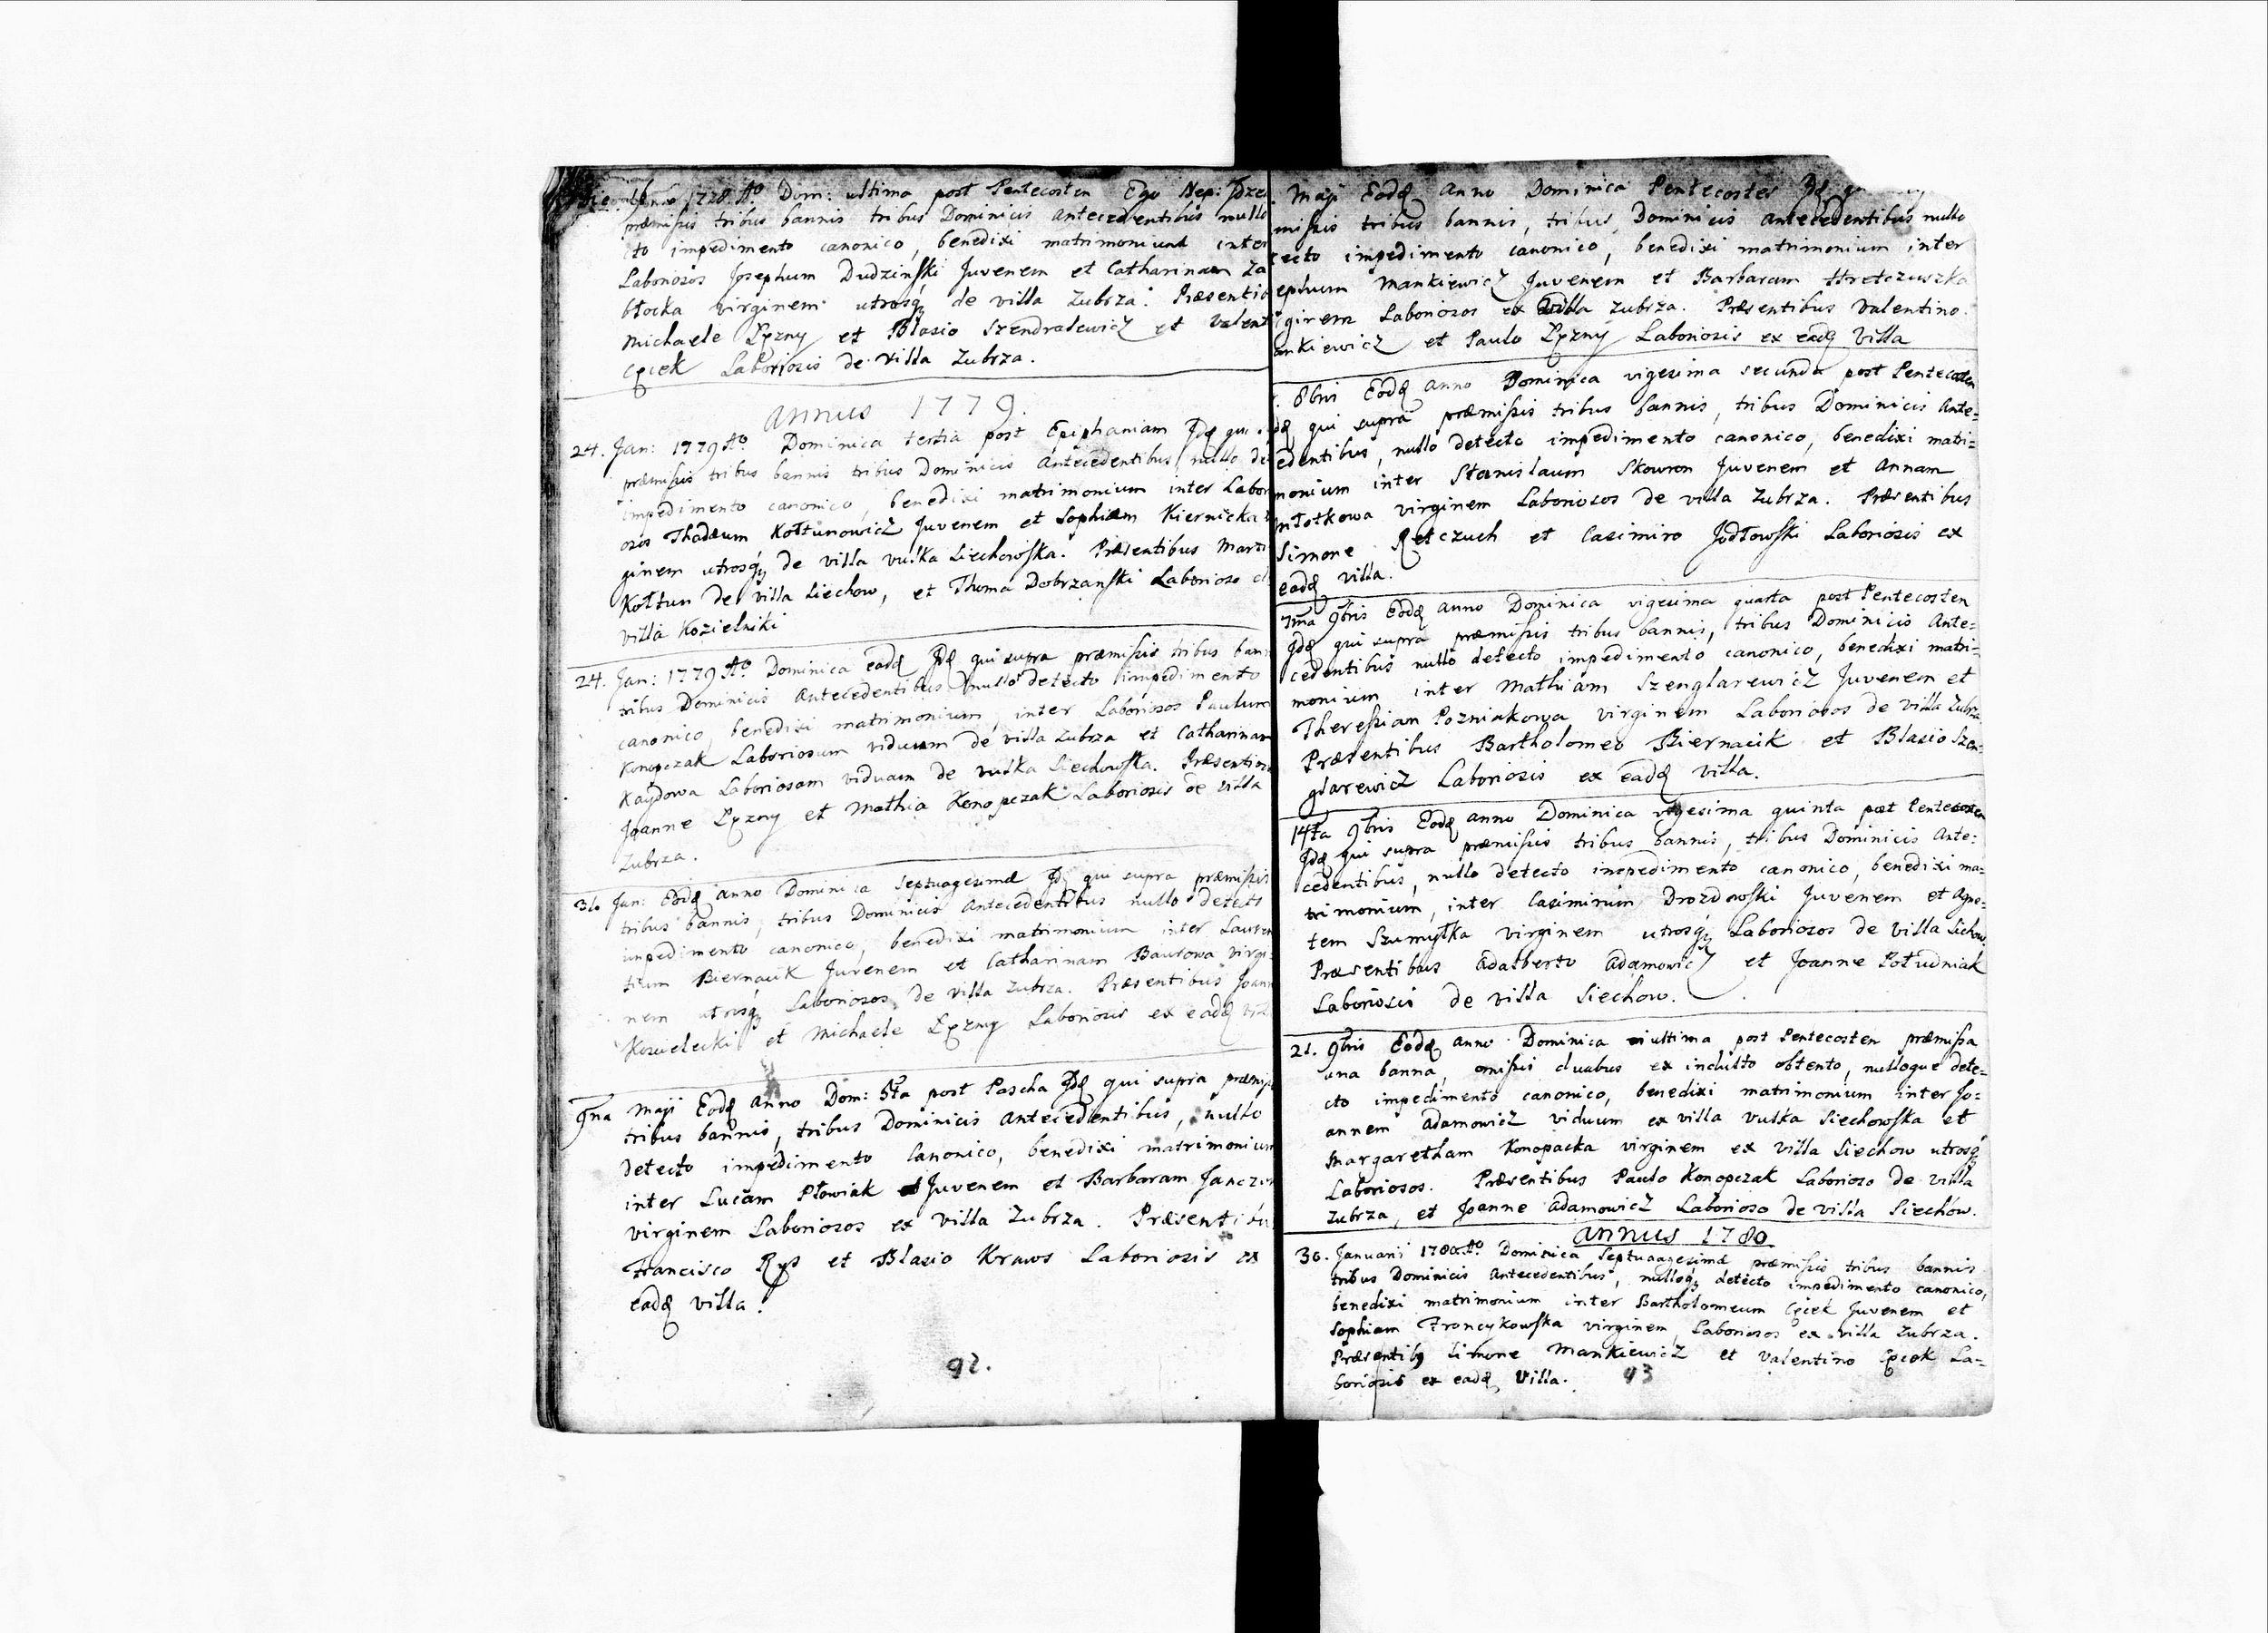 1778 Aō Dom: ultima post Pentecosten Ego Nep:
præmissis tribus bannis tribus Dominicis antecedentibus nullo
cto impedimento canonico, benedixi matrimonium inter
Laboriosos Josephum Dudzinski Juvenem et Catharinam Za
błocka virginem utrosq̨ de villa Zubrza. Præsentib
Michaele Lyzny et Blasio Szendralewicz et Valent
Cycek Laboriosis de villa Zubrza.
Annus 1779.
24. Jan: 1779 Aō Dominica tertia post Epiphaniam Jdē qui
præmissis tribus bannis tribus Dominicis Antecedentibus, nullo de
impedimento canonico, benedixi matrimonium inter Labori
osos Thadæum Kołtunowicz Juvenem et Sophiam Kiernicka
ginem utrosq̨ de villa Vulka Siechowska. Præsentibus Marti
Kołtun de villa Siechow, et Thoma Dobrzanski Laborioso
villa Kozielniki
24. Jan: 1779 Aō Dominica eadē Jdē qui supra præmissis tribus ban
tribus Dominicis Antecedentibus nullo detecto impedimento
canonico, benedixi matrimonium, inter Laboriosos Paulum
Konopczak Laboriosum viduum de villa Zubrza et Catharinam
Kaydowa Laboriosam viduam de Vulka Siechowska. Præsentibus
Joanne Lyzny et Mathia Konopczak Laboriosis de villa
Zubrza.
31. Jan: Eodē anno Dominica Septuagesimæ Jdē qui supra præmissis
tribus bannis, tribus Dominicis Antecedentibus nullo detecto
impedimento canonico, benedixi matrimonium inter Lauren
tium Biernacik Juvenem et Catharinam Baurowa virgi
nem utrosq̨ Laboriosos de villa Zubrza. Præsentibus Joann
Koscielecki et Michaele Lyzny Laboriosis ex eadē vil
9na Maji Eodē anno Dom: 5ta post Pascha Jdē qui supra præmiss
tribus bannis, tribus Dominicis Antecedentibus, nullo
detecto impedimento Canonico, benedixi matrimonium
inter Lucam Płowiak Juvenem et Barbaram
virginem Laboriosos ex villa Zubrza. Præsentibu
Francisco Rys et Blasio Kraws Laboriosis ex
eadē villa.
92.
Maji Eodē anno Dominica Pentecostes Jdē
missis tribus bannis, tribus Dominicis antecedentibus nullo
tecto impedimento canonico, benedixi matrimonium inter
ephum Mankiewicz Juvenem et Barbaram Hretczuszka
irginem Laboriosos ex Villa Zubrza. Præsentibus Valentino
ankiewicz et Paulo Lyzny Laboriosis ex eadē Villa
8bris Eodē anno Dominica vigesima secunda post Pentecosten
dē qui supra præmissis tribus bannis, tribus Dominicis Ante=
edentibus, nullo detecto impedimento canonico, benedixi matri=
monium inter Stanislaum Skowron Juvenem et Annam
Młotkowa virginem Laboriosos de villa Zubrza. Præsentibus
Simone Retczuch et Casimiro Jodłowski Laboriosis ex
eadē villa.
7ma 9bris Eodē anno Dominica vigesima quarta post Pentecosten
Jdē qui supra præmissis tribus bannis, tribus Dominicis Ante=
cedentibus nullo detecto impedimento canonico, benedixi matri=
monium inter Mathiam Szenglarewicz Juvenem et
Theressiam Pozniakowa virginem Laboriosos de villa Zubrza
Præsentibus Bartholomeo Biernacik et Blasio Szen=
glarewicz Laboriosis ex eadē villa.
14ta 9bris Eodē anno Dominica vigesima quinta post Pentecosten
Jdē qui supra præmissis tribus bannis, tribus Dominicis Ante=
cedentibus, nullo detecto impedimento canonico, benedixi ma=
trimonium, inter Casimirum Drozdowski Juvenem et Agne=
tem Szumytka virginem utrosq̨ Laboriosos de villa Sichow.
Præsentibus Adalberto Adamowicz et Joanne Południak
Laboriosis de villa Siechow.
21. 9bris Eodē anno Dominica ultima post Pentecosten præmissa
una banna, omissis duabus ex indulto obtento, nulloque dete=
cto impedimento canonico, benedixi matrimonium inter Jo=
annem Adamowicz viduum ex villa Vulka Siechowska et
Margaretham Konopacka virginem ex villa Siechow utrosq̨
Laboriosos. Præsentibus Paulo Konopczak Laborioso de villa
Zubrza, et Joanne Adamowicz Laborioso de villa Siechow.
Annus 1780
30. Januarii 1780 Aō Dominica Septuagesimæ præmissis tribus bannis
tribus Dominicis Antecedentibus, nulloq̨ detecto impedimento canonico,
benedixi matrimonium inter Bartholomeum Cycek Juvenem et
Sophiam Francykowska virginem, Laboriosos ex villa Zubrza.
Præsentibq Simone Mankiewicz et Valentino Cycek La=
boriosis ex eadē Villa.
93